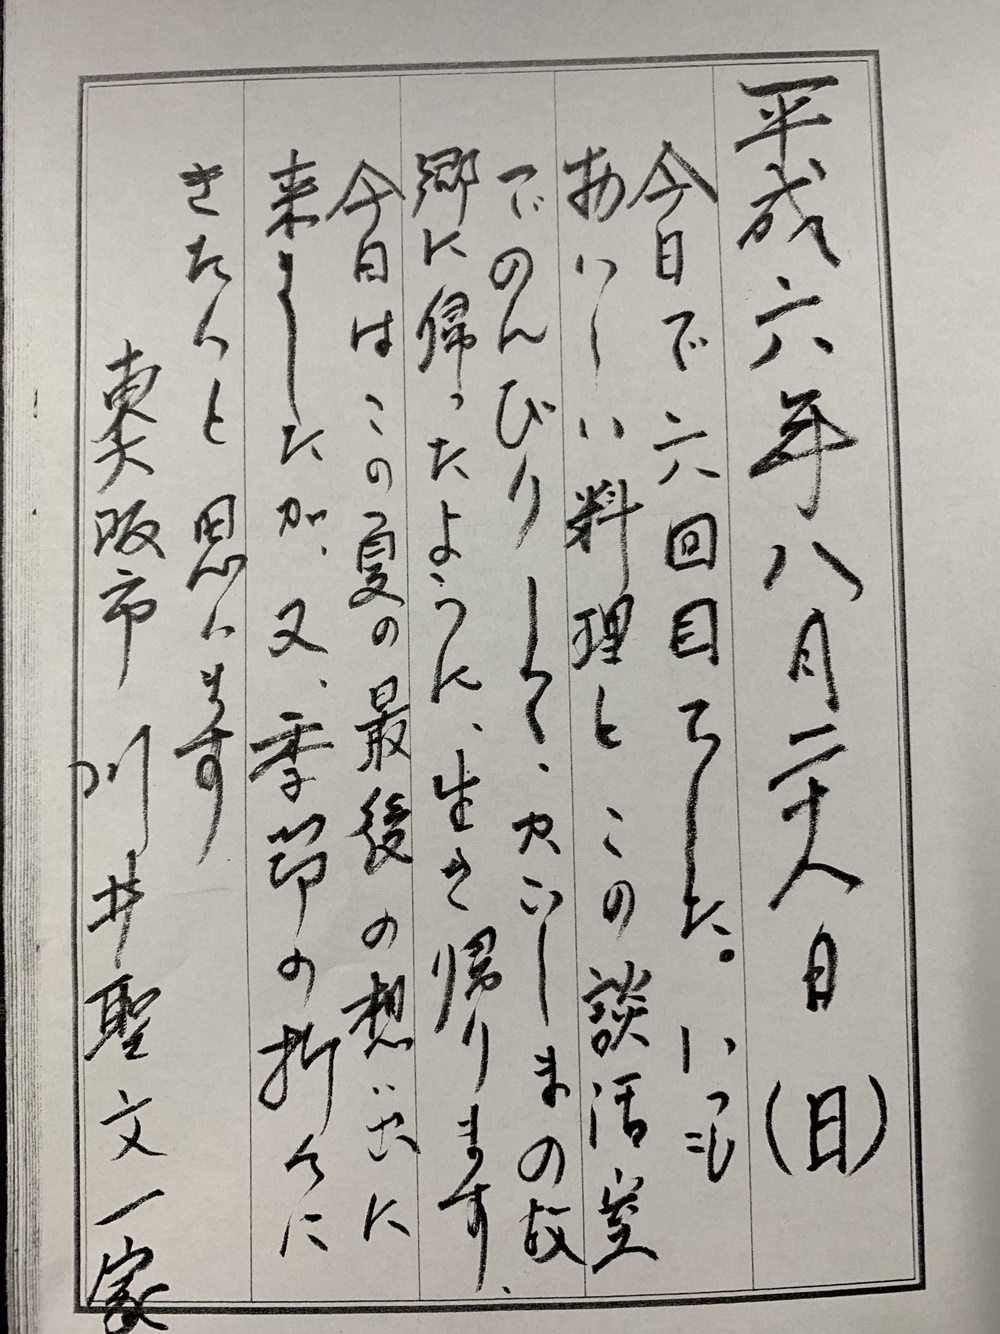 平成六年八月二十八日（日）
今日で六回目でした。いつも
おいしい料理とこの談話室
でのんびりして、なつかしまの故
郷に帰ったように、生き帰ります、
今日はこの夏の最後の想い出に
来ましたが、又、季節の折々に
きたいと思います
東大阪市 川井聖文一家